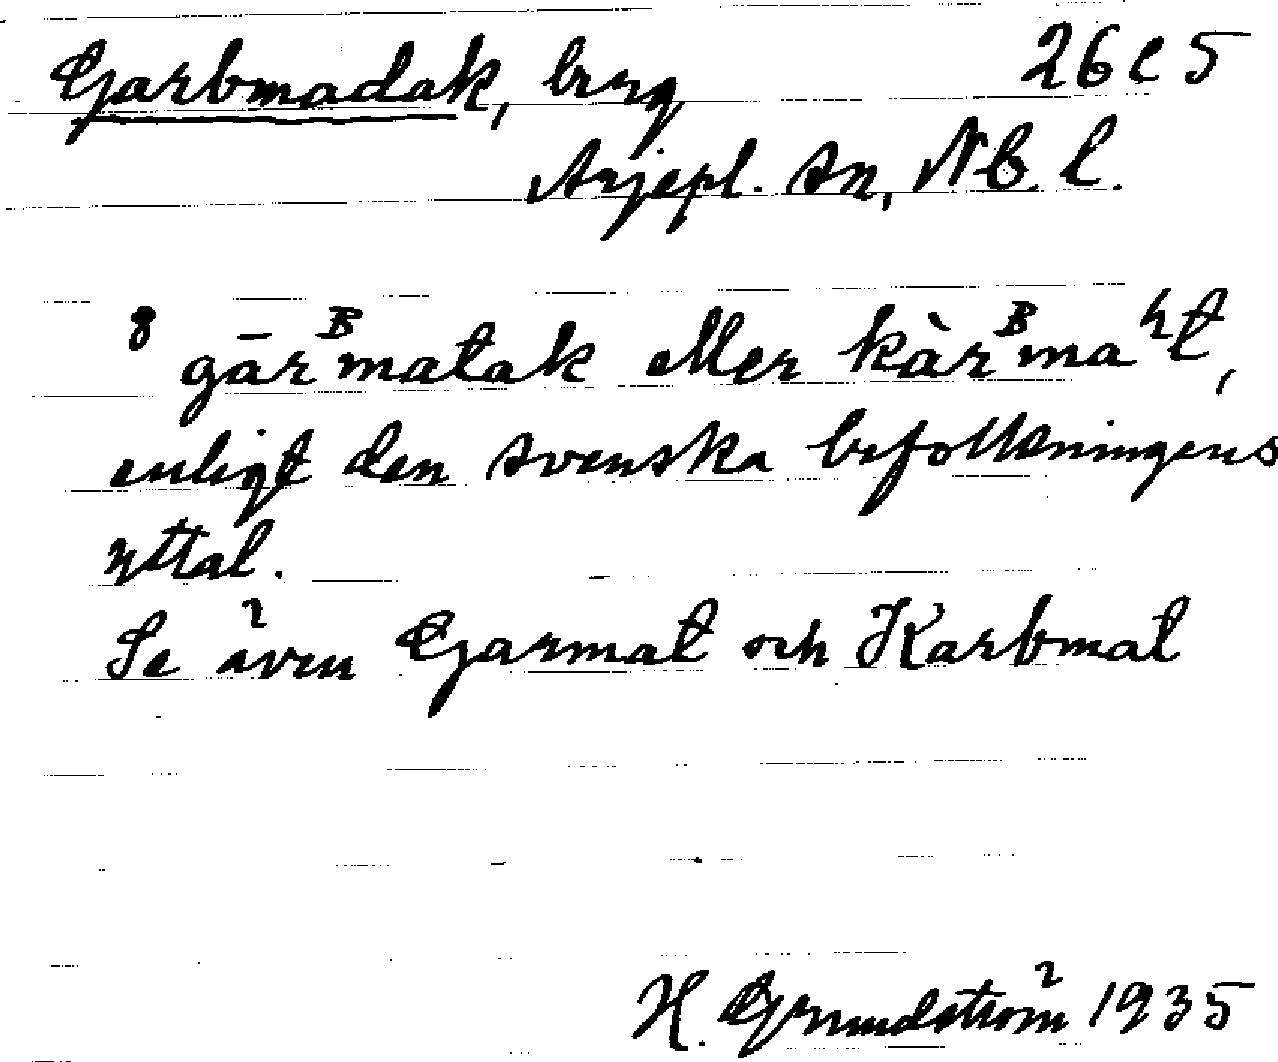 Garbmadak, berg 26c5
Arjepl. sn, Nb. l.
8 gārᴮmatak eller kàrᴮmaʰt,
enligt den svenska befolkningens
uttal.
Se även Garmat och Karbmat
H. Grundström 1935